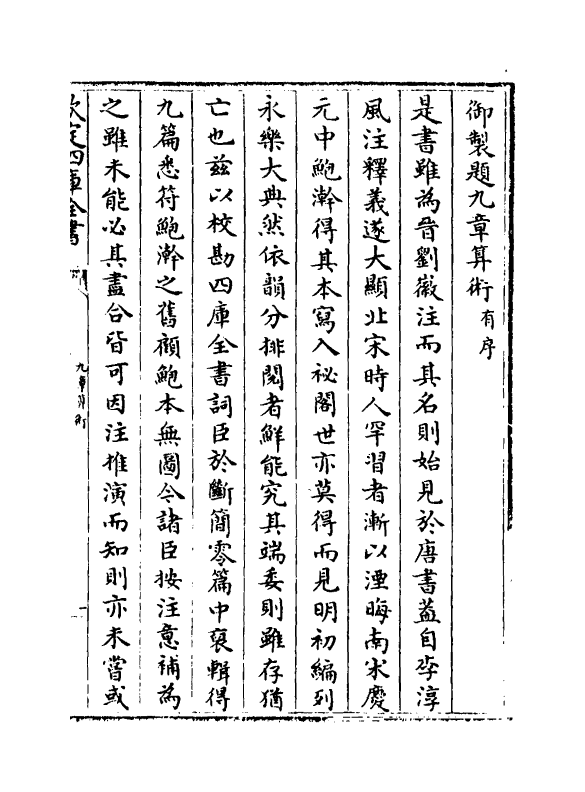 御製題九章算術有序
是書雖為晉劉徽注而其名則始見於唐書葢自李淳
風注釋義遂大顯北宋時人罕習者漸以湮晦南宋慶
元中鮑澣得其本寫入祕閣世亦莫得而見明初編列
永樂大典然依韻分排閱者鮮能究其端委則雖存猶
亡也兹以校勘四庫全書詞臣於斷簡零篇中裒輯得
九篇悉符鮑澣之舊顧鮑本無圖今諸臣按注意補為
之雖未能必其盡合皆可因注推演而知則亦未嘗或
欽定四庫全書
九章算術
一